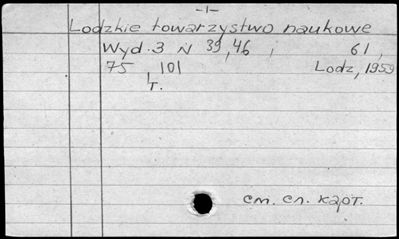 -1-
Lodzkie towarzystwo naukowe
Wyd. 3 N 39, 46, 61,
75, 101 Lodz, 1959
T.
см. сл. карт.